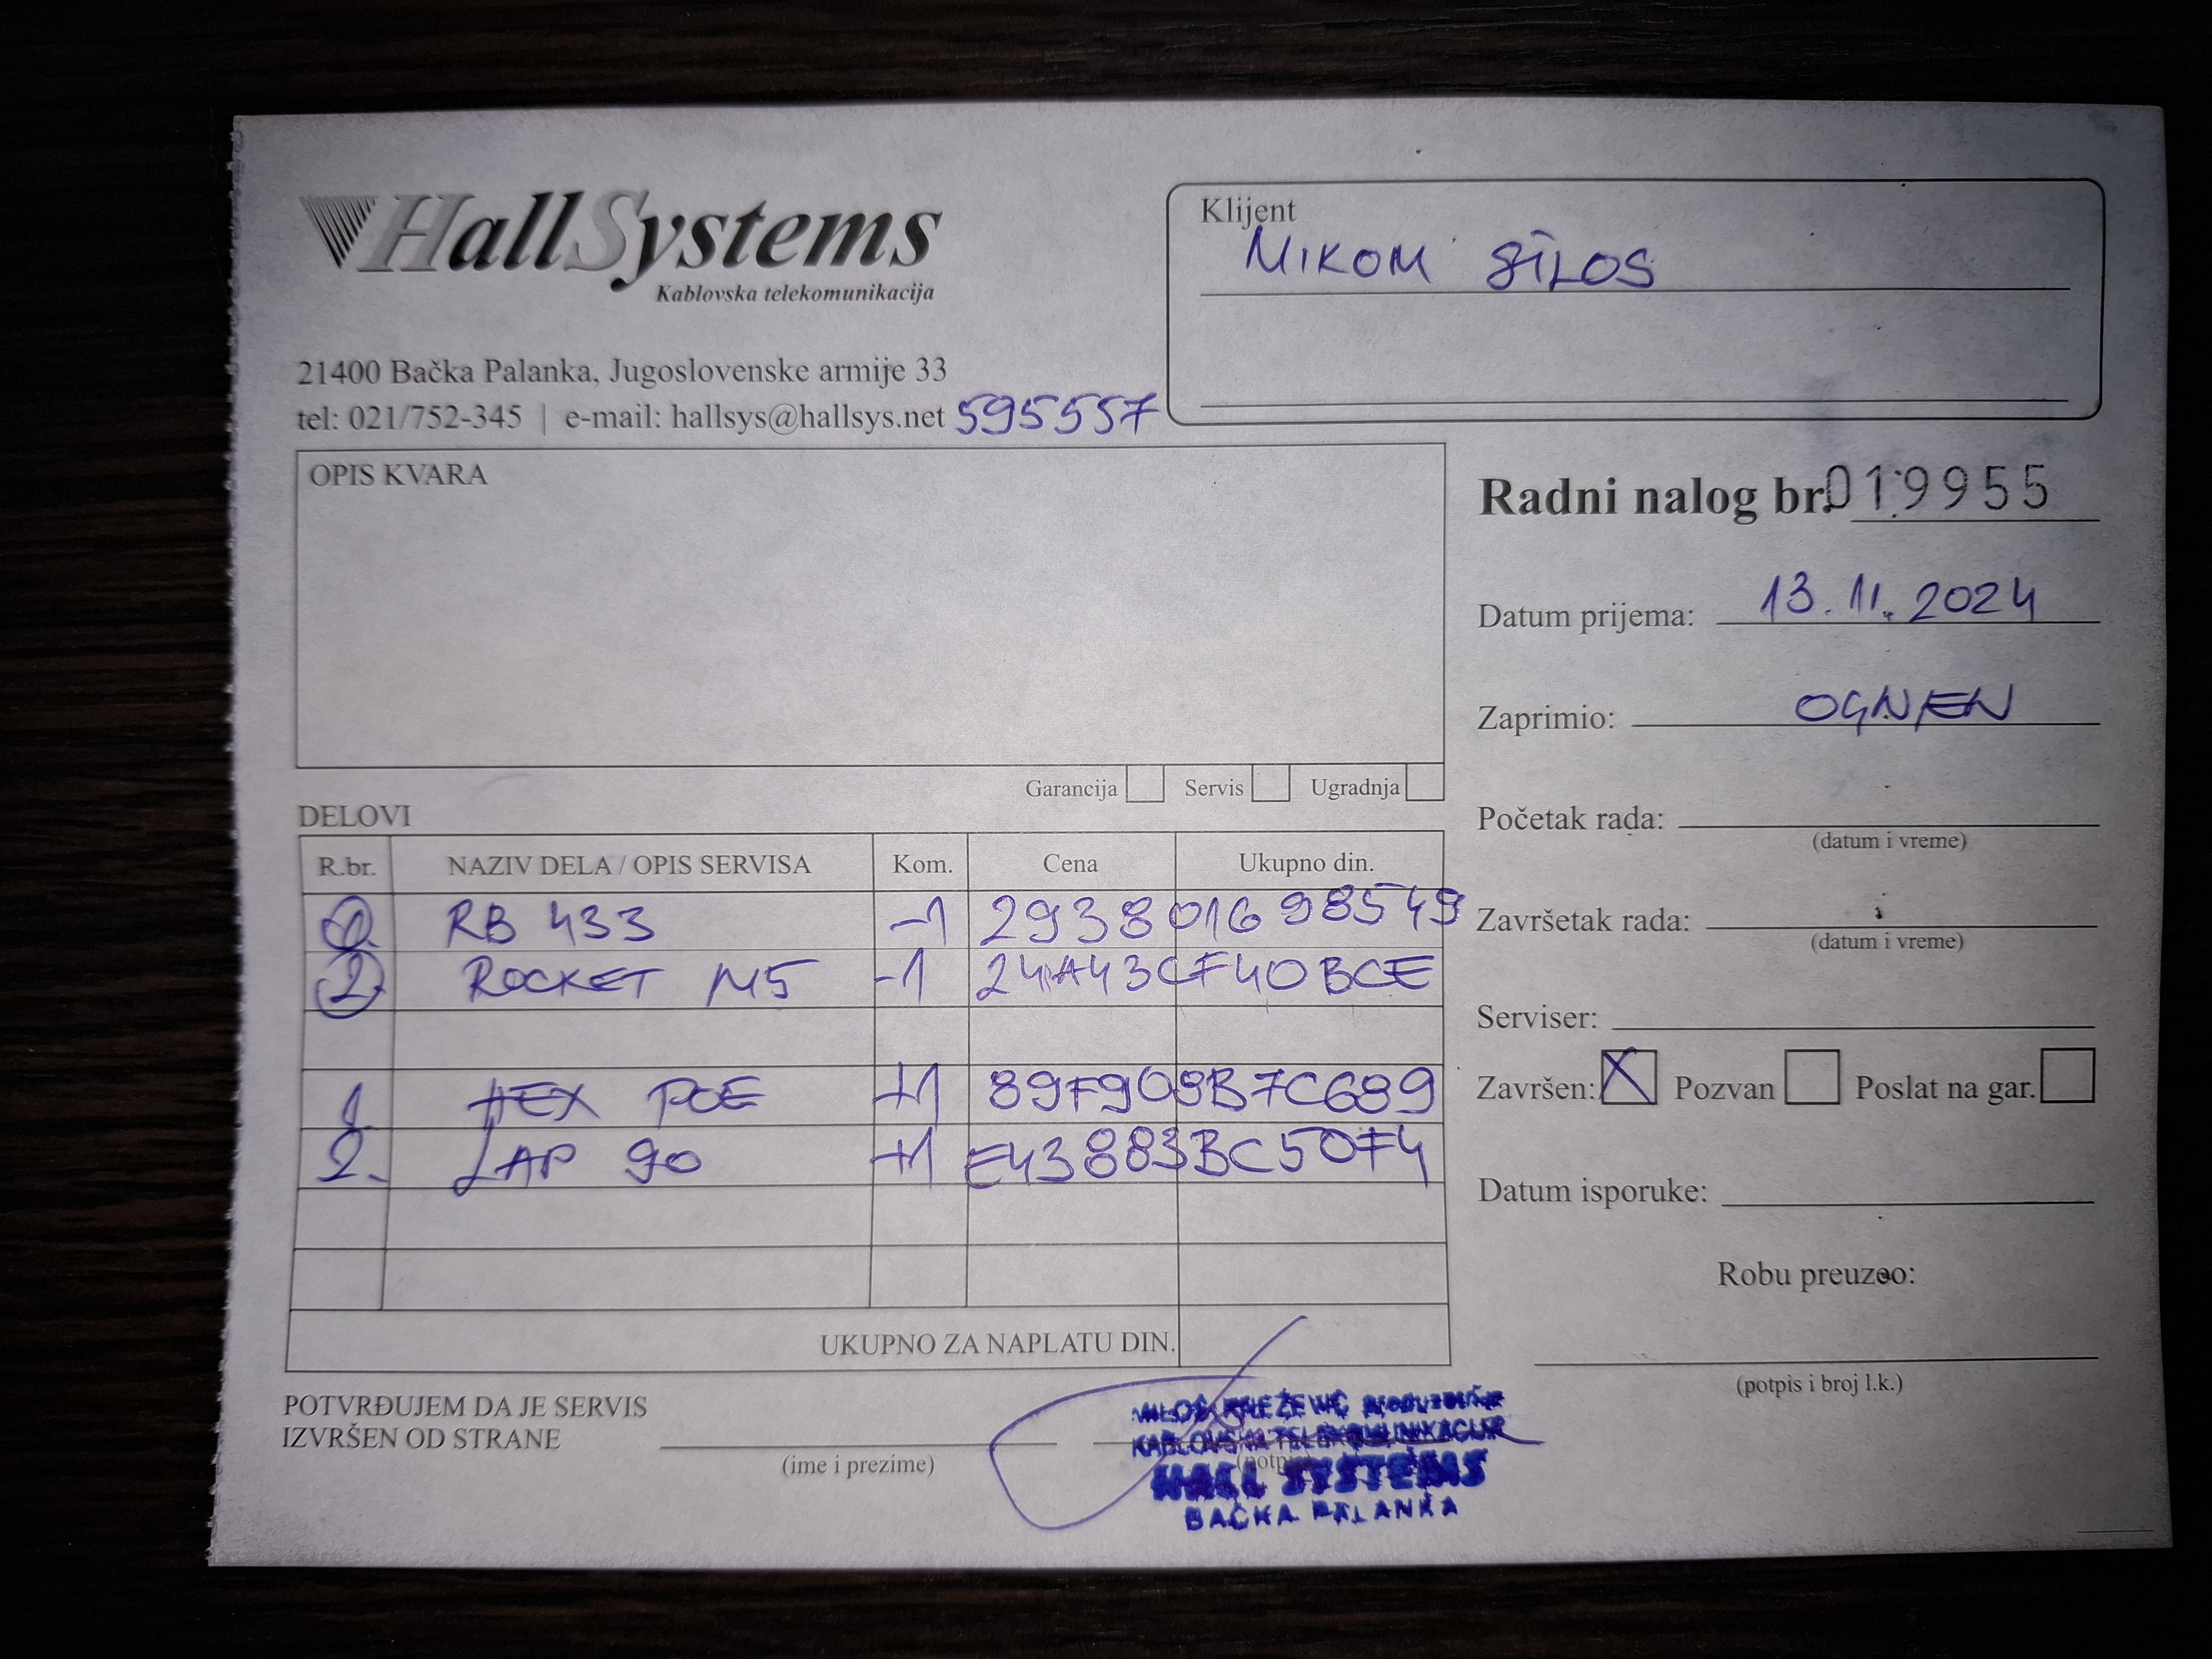 HallSystems
Kablovska telekomunikacija
21400 Bačka Palanka, Jugoslovenske armije 33
tel: 021/752-345 | e-mail: hallsys@hallsys.net 595557
Klijent
MIKOM SILOS
OPIS KVARA
Garancija Servis Ugradnja
Radni nalog br. 019955
Datum prijema: 13.11.2024
Zaprimio: OGNJEN
Početak rada:
(datum i vreme)
Završetak rada:
(datum i vreme)
Serviser:
Završen: X Pozvan Poslat na gar.
Datum isporuke:
Robu preuzeo:
(potpis i broj l.k.)
DELOVI
R.br. NAZIV DELA / OPIS SERVISA Kom. Cena Ukupno din.
1. RB 433 -1 293801698549
2. ROCKET M5 -1 24A43CF40BCE
1. HEX POE +1 89F908B7C689
2. LAP 90 +1 E43883BC50F4
UKUPNO ZA NAPLATU DIN.
POTVRĐUJEM DA JE SERVIS
IZVRŠEN OD STRANE
(ime i prezime)
(potpis)
KABLOVSKA TELEKOMUNIKACIJA
HALL SYSTEMS
BAČKA PALANKA